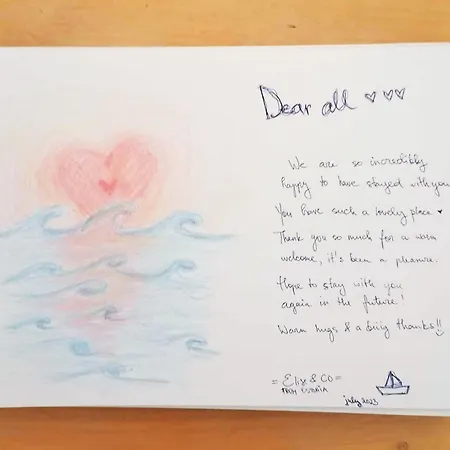 Dear all ♡ ♡♡
We are so incredibly
happy to have stayed with you
You have such a lovely place ♥
Thank you so much for a warm
welcome, it's been a pleasure.
Hope to stay with you
again in the future!
Warm hugs & a biiig thanks!!
= Elix & Co =
FROM
july 2023